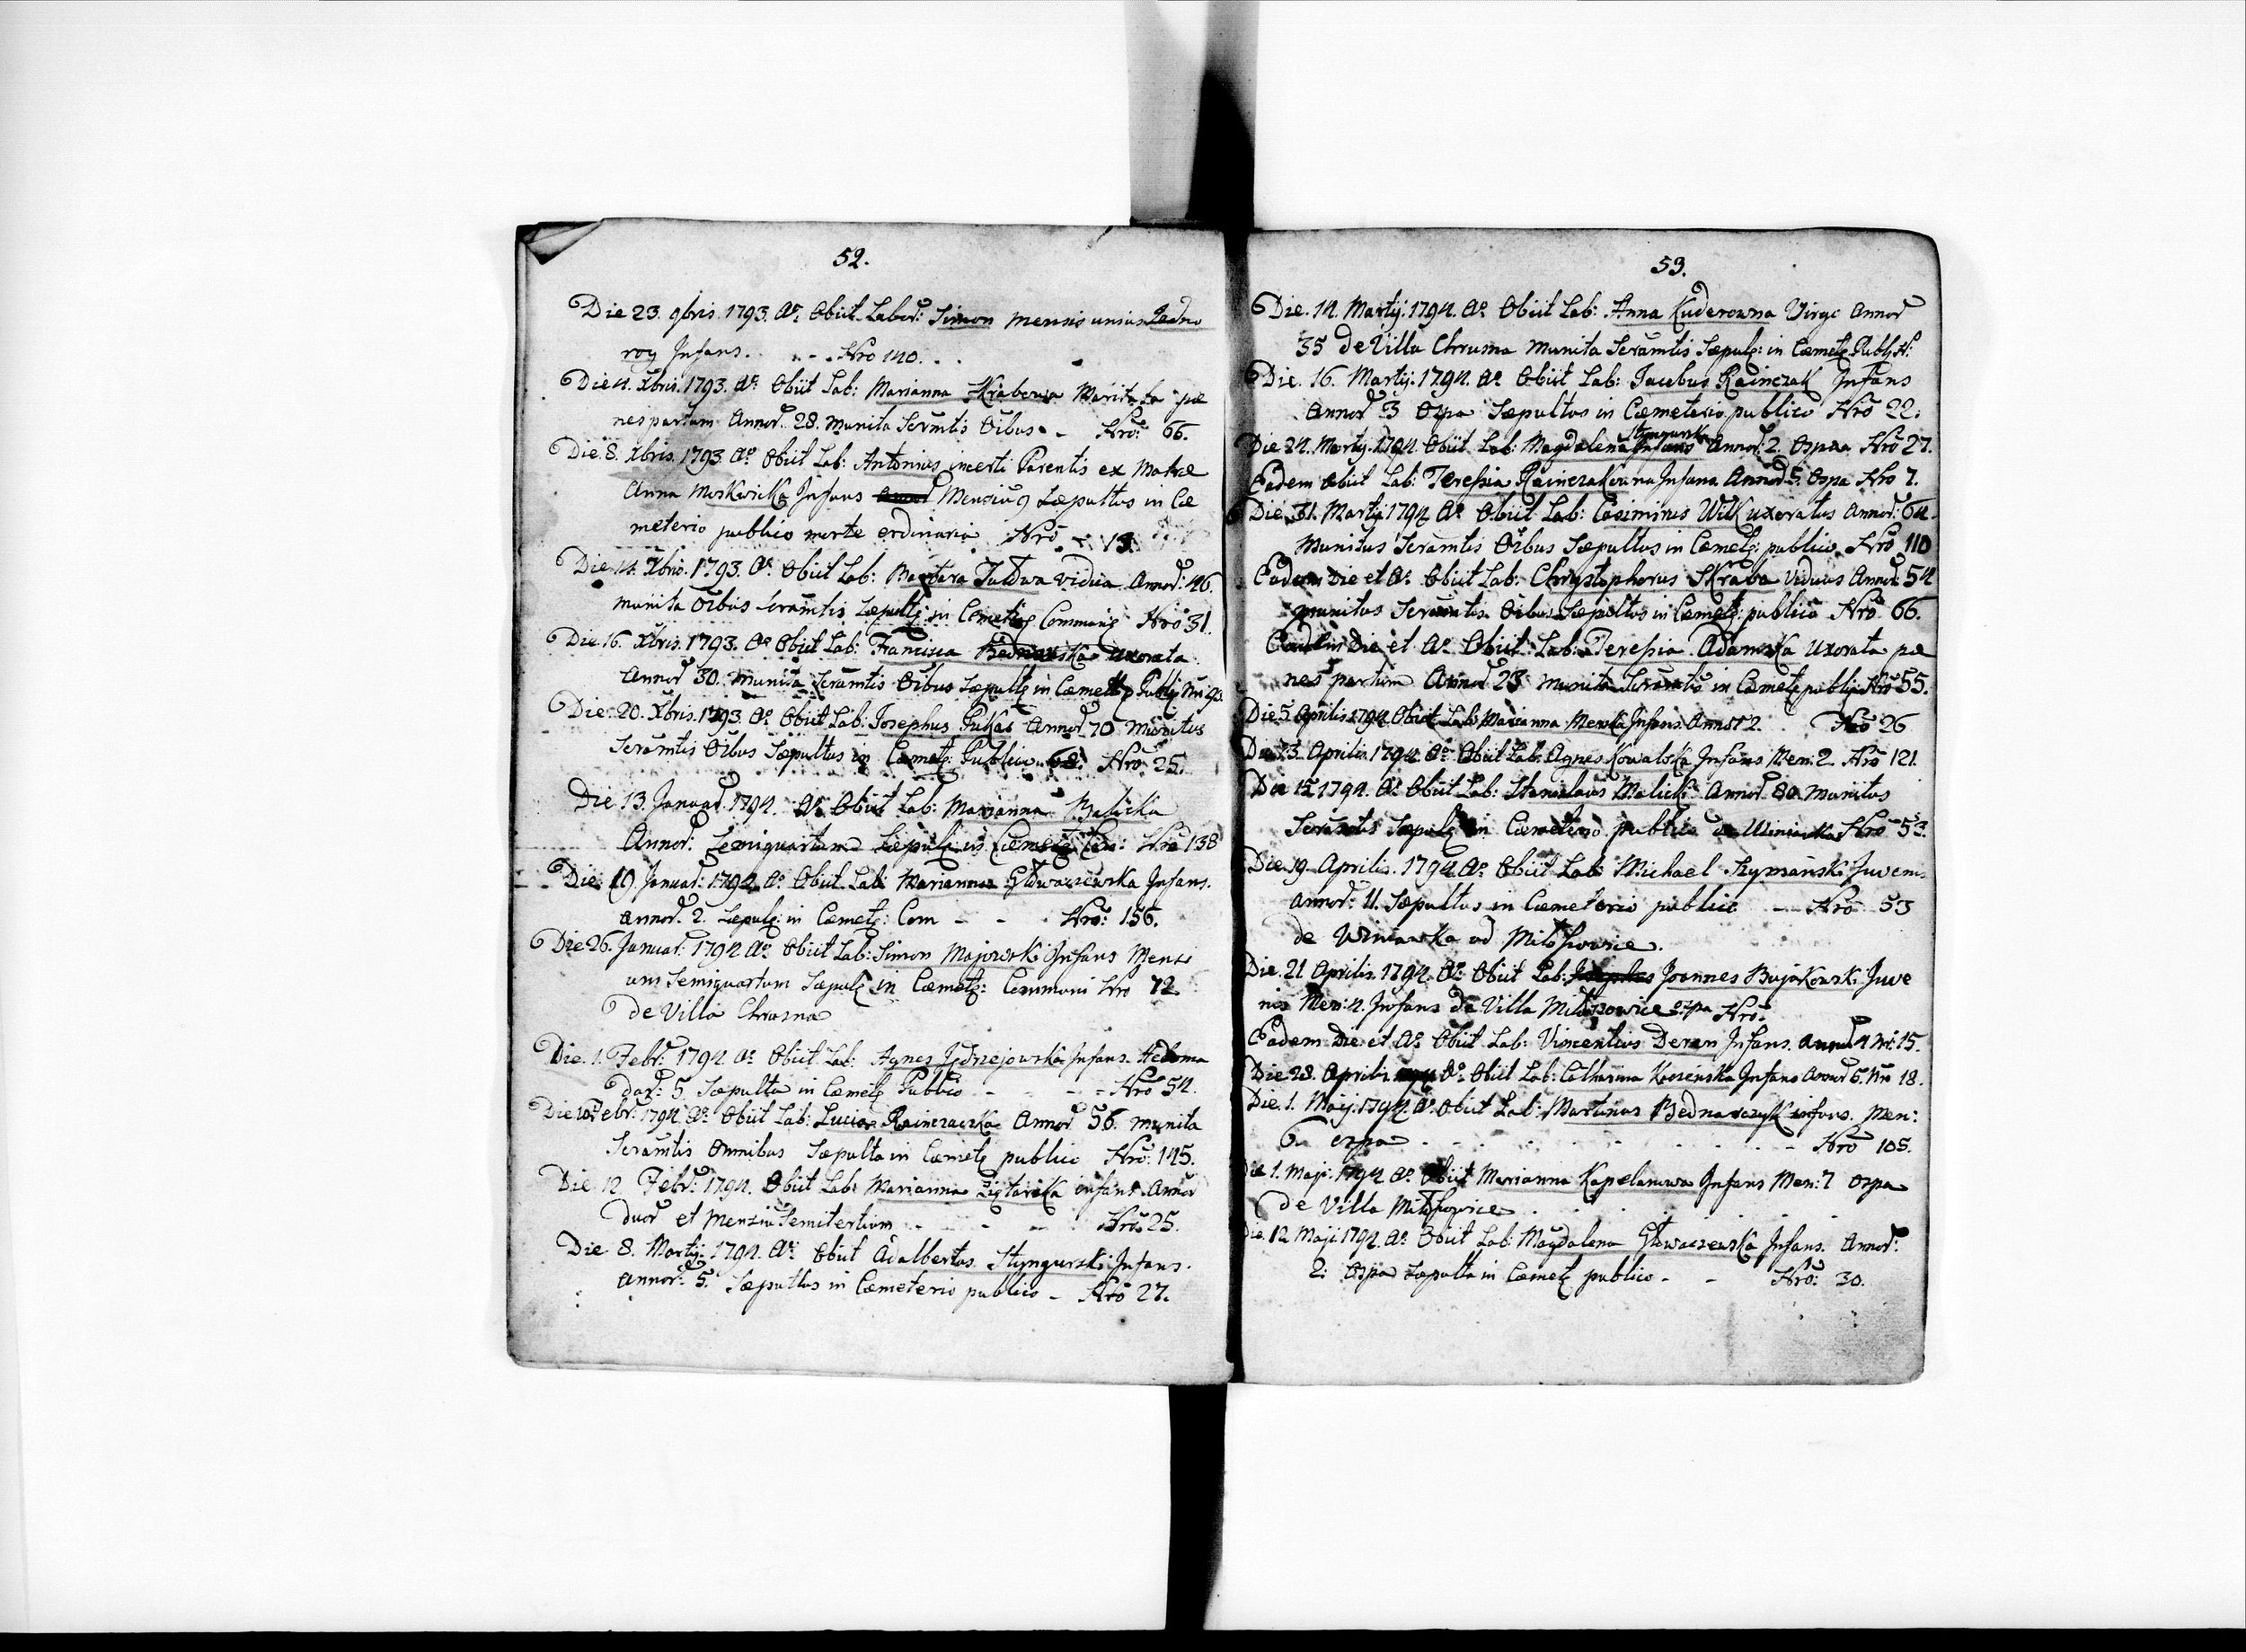 52.
Die 23. 9bris. 1793. Ao. Obiit Labor: Simon mensis unius Jedno
roy Infans. . - . Nro 140. . .
Die 4. Xbris. 1793. Ao. Obiit Lab: Marianna Skrabowa Maritata pæ
nes partum Annor. 28. munita Scramtis Oibus - Nro: 66.
Die 8. Xbris. 1793. Ao Obiit Lab: Antonius incerti Parentis ex Matre
Anna Moskwicka Infans Mensiu 9 Sæpultus in Cæ
meterio publico morte ordinaria Nro - 13.
Die 14. Xbris. 1793. Ao. Obiit Lab: Barbara vidua Annor: 46.
munita Oibus Scramtis Sæpulta in Communi Nro 31.
Die 16. Xbris. 1793. Ao Obiit Lab: Francisca Bednarska uxorata
Annor 30. munita Scramtis Oibus Sæpulta in Cæmet: Publ:
Die 20. Xbris. 1793. Ao. Obiit Lab: Josephus Pukas Annor 70 munitus
Scramtis Oibus Sæpultus in Cæmet: Publico 68. Nro 25.
Die 13. Januar. 1794. Ao Obiit Lab: Marianna Balicka
Annor: Semiquartum Sæpul: in Cæmet: Com: Nro 138
Die 19. Januar: 1794. Ao. Obiit Lab: Marianna Głowaczewska Infans.
annor. 2. Sæpul: in Cæmet: Com - - Nro: 156.
Die 26. Januar: 1794 Ao. Obiit Lab: Simon Majewski Infans Mens
um Semiquartum Sæpul: in Cæmet: Communi Nro 72
De Villa Chrusna
Die 1. Febr: 1794 Ao. Obiit Lab: Agnes Jędrzejowska Infans. Hedoma
dar: 5. Sæpulta in Cæmet: Publico - - - Nro 54.
Die 10 Febr: 1794. Ao. Obiit Lab: Lucia Rainczaczka Annor 56. munita
Scramtis Omnibus Sæpulta in Cæmet: publico Nro: 145.
Die 12 Febr: 1794. Obiit Lab: Marianna Ziętarska infans. Annor
duor et Mensiu Semitertium - - - Nro 25.
Die 8. Martij 1794. Ao: Obiit Adalbertus Styngurski Infans.
annor: 5. Sæpultus in Cæmeterio publico - Nro 27.
53.
Die. 14. Martij. 1794. Ao Obiit Lab: Anna Kuderowna Virgo Annor
35 de Villa Chrusna munita Scramtis Sæpul: in Cæmet: Publ:
Die. 16. Martij. 1794. Ao Obiit Lab: Jacobus Rainczak Infans
Annor 3 Ospa Sæpultus in Cæmeterio publico Nro 22.
Styngurska
Die 24. Martij. 1794. Obiit Lab: Magdalena Infans Annor. 2. Ospaa Nro 27.
Eadem obiit Lab: Teressia Rainczakowna Infans Annor 5. Ospa Nro 7.
Die 31. Martij 1794 Ao Obiit Lab: Casimirus Wilk uxoratus Annor: 64.
Munitus Scramtis Oibus Sæpultus in Cæmet: publico Nro 110
Eadem Die et Ao. Obiit Lab: Chrystophorus Skraba Viduus Annor: 54
munitus Scramtis Oibus Sæpultus in Cæmet: publico Nro 66.
Eadem Die et Ao Obiit Lab: Teressia Adamska Uxorata pæ
nes partum Annor 28 munita Scramtis in Cæmet: publ: Nro 55.
Die 5 Aprilis 1794. Obiit Lab: Marianna Infans Annor 2. . Nro 26
Die 13. Aprilis. 1794 Ao Obiit Lab: Agnes Kowalska Infans Men: 2. Nro 121.
Die 15 1794. Ao Obiit Lab: Stanislaus Malicki Annor 80 munitus
Scramtis Sæpul: in Cæmeterio publico Nro 53.
Die 19 Aprilis. 1794 Ao Obiit Lab: Michael Szymanski Juvenis
annor: 11. Sæpultus in Cæmeterio publico - Nro 53
de Winiawka ad Miłosowice.
Die. 21 Aprilis. 1794. Ao. Obiit Lab: Joannes Bujakowski Juve
nis Men: 4. Infans de Villa Miłossowice ospa Nro:
Eadem Die et Ao. Obiit Lab: Vincentius Deren Infans. Annor 4 Nr: 15.
Die 28. Aprilis Ao. Obiit Lab: Catharina Infans Annor 5. Nro 18.
Die. 1. Maij. 1794. Ao. Obiit Lab: Martinus Bednarczyk infans. Men:
6. ospa - - - Nro 105.
Die 1. Maji. 1794 Ao. Obiit Marianna Kapelanowa Infans Men: 7 ospa
de Villa Miłossowice . . .
Die. 12 Maji. 1794. Ao. Obiit Lab: Magdalena Głowaczewska Infans. Annor:
2: Ospa Sæpulta in Cæmet: publico - - Nro: 30.